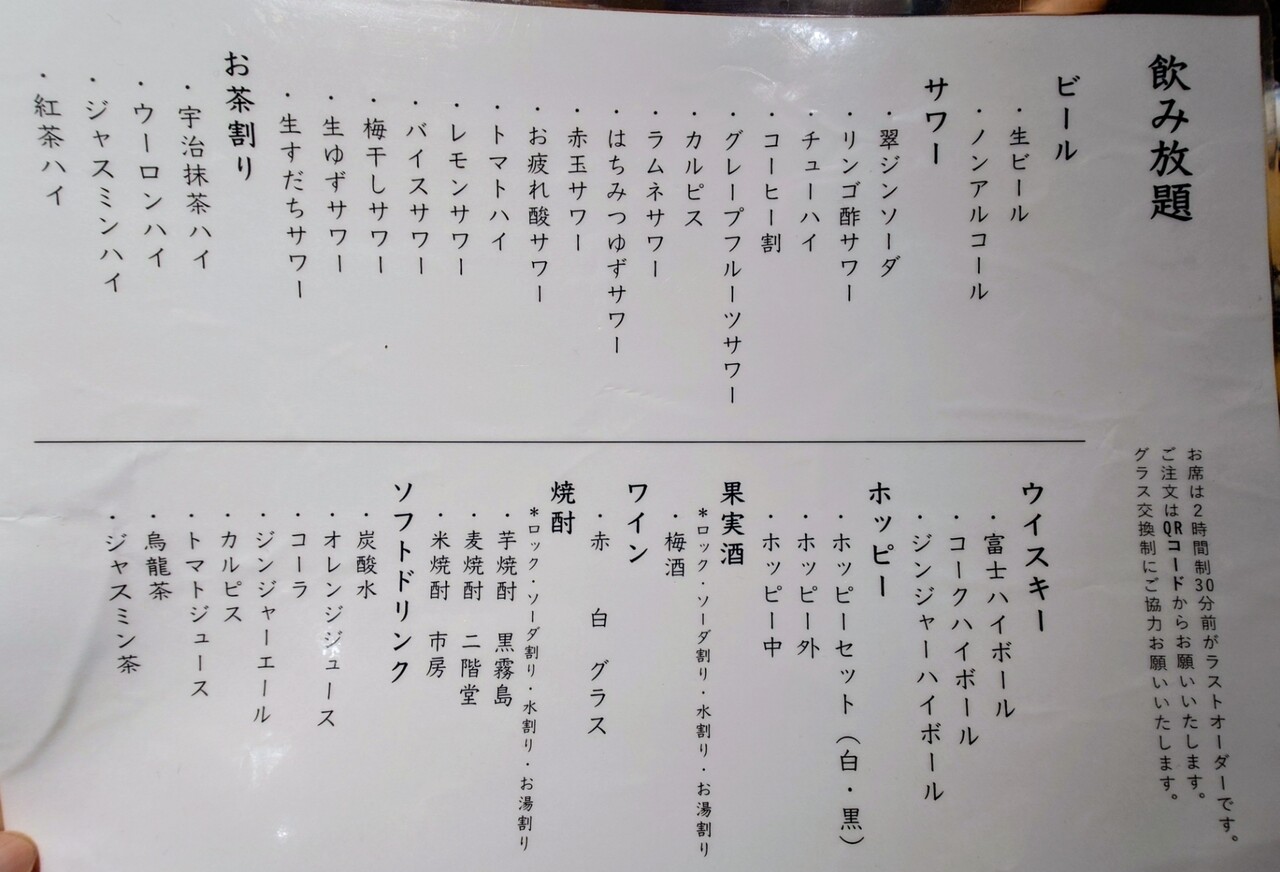 飲み放題
お席は2時間制30分前がラストオーダーです。
ご注文はQRコードからお願いいたします。
グラス交換制にご協力お願いいたします。
ビール
・生ビール
・ノンアルコール
サワー
・翠ジンソーダ
・リンゴ酢サワー
・チューハイ
・コーヒー割
・グレープフルーツサワー
・カルピス
・ラムネサワー
・はちみつゆずサワー
・赤玉サワー
・お疲れ酸サワー
・トマトハイ
・レモンサワー
・バイスサワー
・梅干しサワー
・生ゆずサワー
・生すだちサワー
お茶割り
・宇治抹茶ハイ
・ウーロンハイ
・ジャスミンハイ
・紅茶ハイ
ウイスキー
・富士ハイボール
・コークハイボール
・ジンジャーハイボール
ホッピー
・ホッピーセット（白・黒）
・ホッピー外
・ホッピー中
果実酒
*ロック・ソーダ割り・水割り・お湯割り
・梅酒
ワイン
・赤 白 グラス
焼酎
*ロック・ソーダ割り・水割り・お湯割り
・芋焼酎 黒霧島
・麦焼酎 二階堂
・米焼酎 市房
ソフトドリンク
・炭酸水
・オレンジジュース
・コーラ
・ジンジャーエール
・カルピス
・トマトジュース
・烏龍茶
・ジャスミン茶